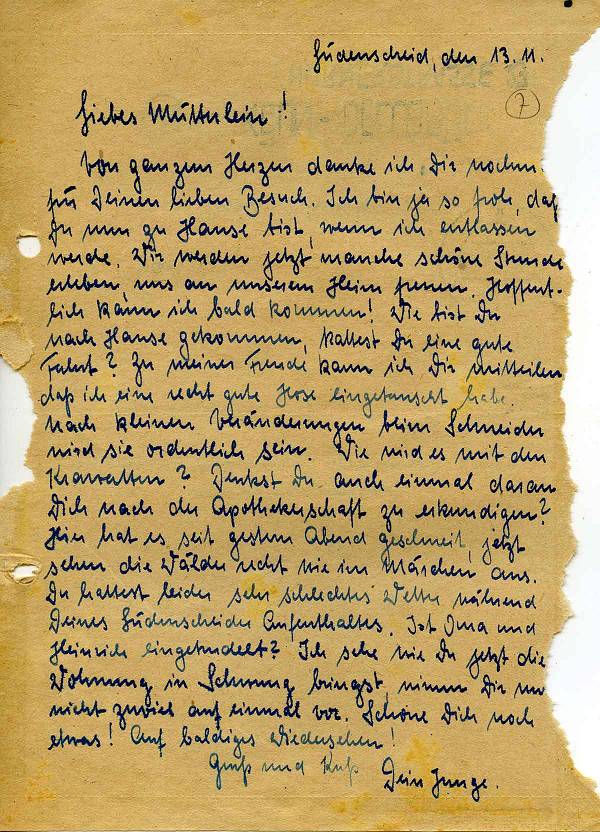 Lüdenscheid, den 13.11.
7
Liebes Mütterlein!
Von ganzem Herzen danke ich Dir nochm.
für Deinen lieben Besuch. Ich bin ja so froh, daß
Du nun zu Hause bist, wenn ich entlassen
werde. Wir werden jetzt manche schöne Stunde
erleben, uns an unserem Heim freuen. Hoffent-
lich kann ich bald kommen! Wie bist Du
nach Hause gekommen, hattest Du eine gute
Fahrt? Zu meiner Freude kann ich Dir mitteilen
daß ich eine recht gute Hose eingetauscht habe.
Nach kleinen Veränderungen beim Schneider
wird sie ordentlich sein. Wie wird es mit den
Krawatten? Denkst Du auch einmal daran
Dich nach der Apothekerschaft zu erkundigen?
Hier hat es seit gestern Abend geschneit, jetzt
sehen die Wälder recht wie im Märchen aus.
Du hattest leider sehr schlechtes Wetter während
Deines Lüdenscheider Aufenthaltes. Ist Oma und
Heinrich eingetrudelt? Ich sehe wie Du jetzt die
Wohnung in Schwung bringst, nimm Dir nur
nicht zuviel auf einmal vor. Schone Dich noch
etwas! Auf baldiges Wiedersehen!
Gruß und Kuß Dein Junge.